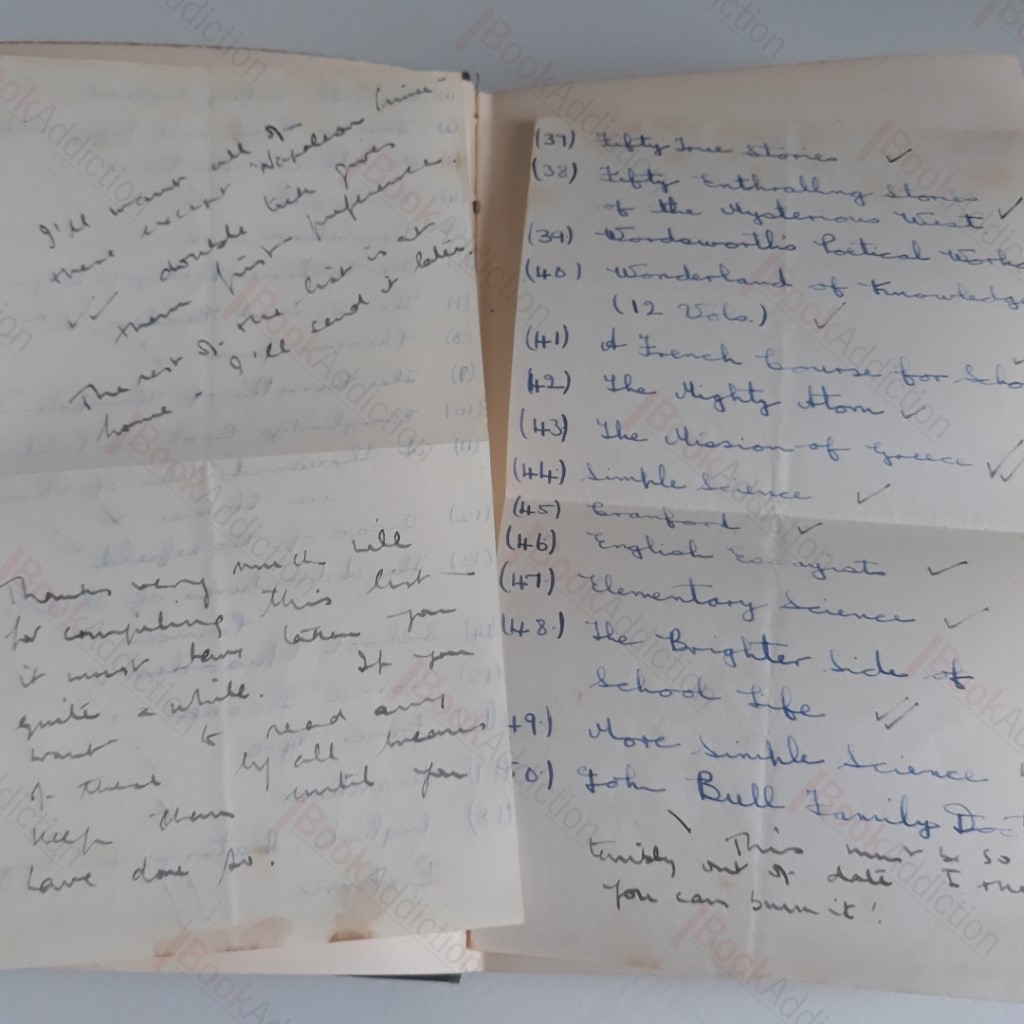 I'll want all of
these except "Napoleon
✓✓ double tick gives
them first preference.
The rest of the list is at
home - I'll send it later.
Thanks very much Will
for compiling this list —
it must have taken you
quite a while. If you
want to read any
of these by all means
keep them until you
have done so.
(37) Fifty True Stories ✓
(38) Fifty Enthralling Stories
of the Mysterious West. ✓
(39) Wordsworth's Poetical Works
(40) Wonderland of Knowledge
(12 Vols.) ✓
(41) A French Course for Scho
(42) The Mighty Atom ✓
(43) The Mission of Greece ✓✓
(44) Simple Science ✓
(45) Cranford ✓
(46) English ✓
(47.) Elementary Science ✓
(48.) The Brighter Side of
School Life ✓✓
49.) More Simple Science
0.) John Bull Family Doc
This must be so
terribly out of date I
you can burn it!
BookAddiction